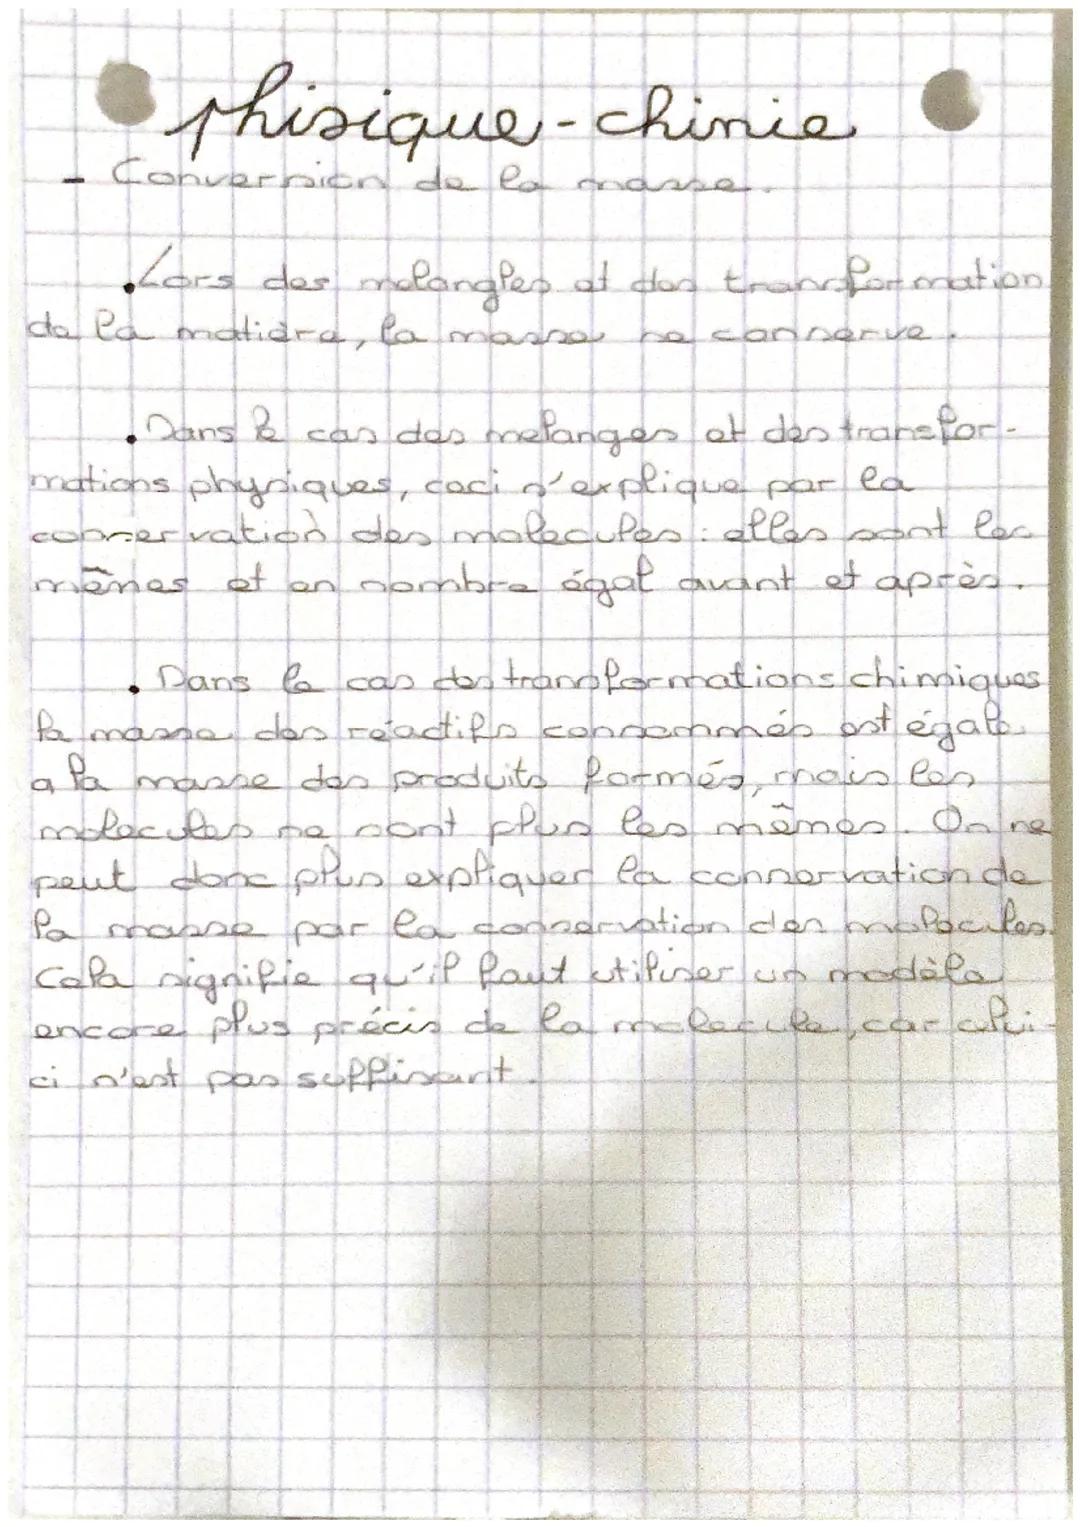 phisique-chimie
- Conversion de la masse.
. Lors des melangles et des transformation
de la matière, la masse se conserve.
. Dans le cas des melanges et des transfor-
mations physiques, ceci s'explique par la
conservation des molecules : elles sont les
mêmes et en nombre égal avant et après.
. Dans le cas des transformations chimiques
la masse des réactifs consommés est égale
a la masse des produits formés, mais les
molecules ne sont plus les mêmes. On ne
peut donc plus expliquer la conservation de
la masse par la conservation des molecules.
Cela signifie qu'il faut utiliser un modèle
encore plus précis de la molecule, car celui-
ci n'est pas suffisant.